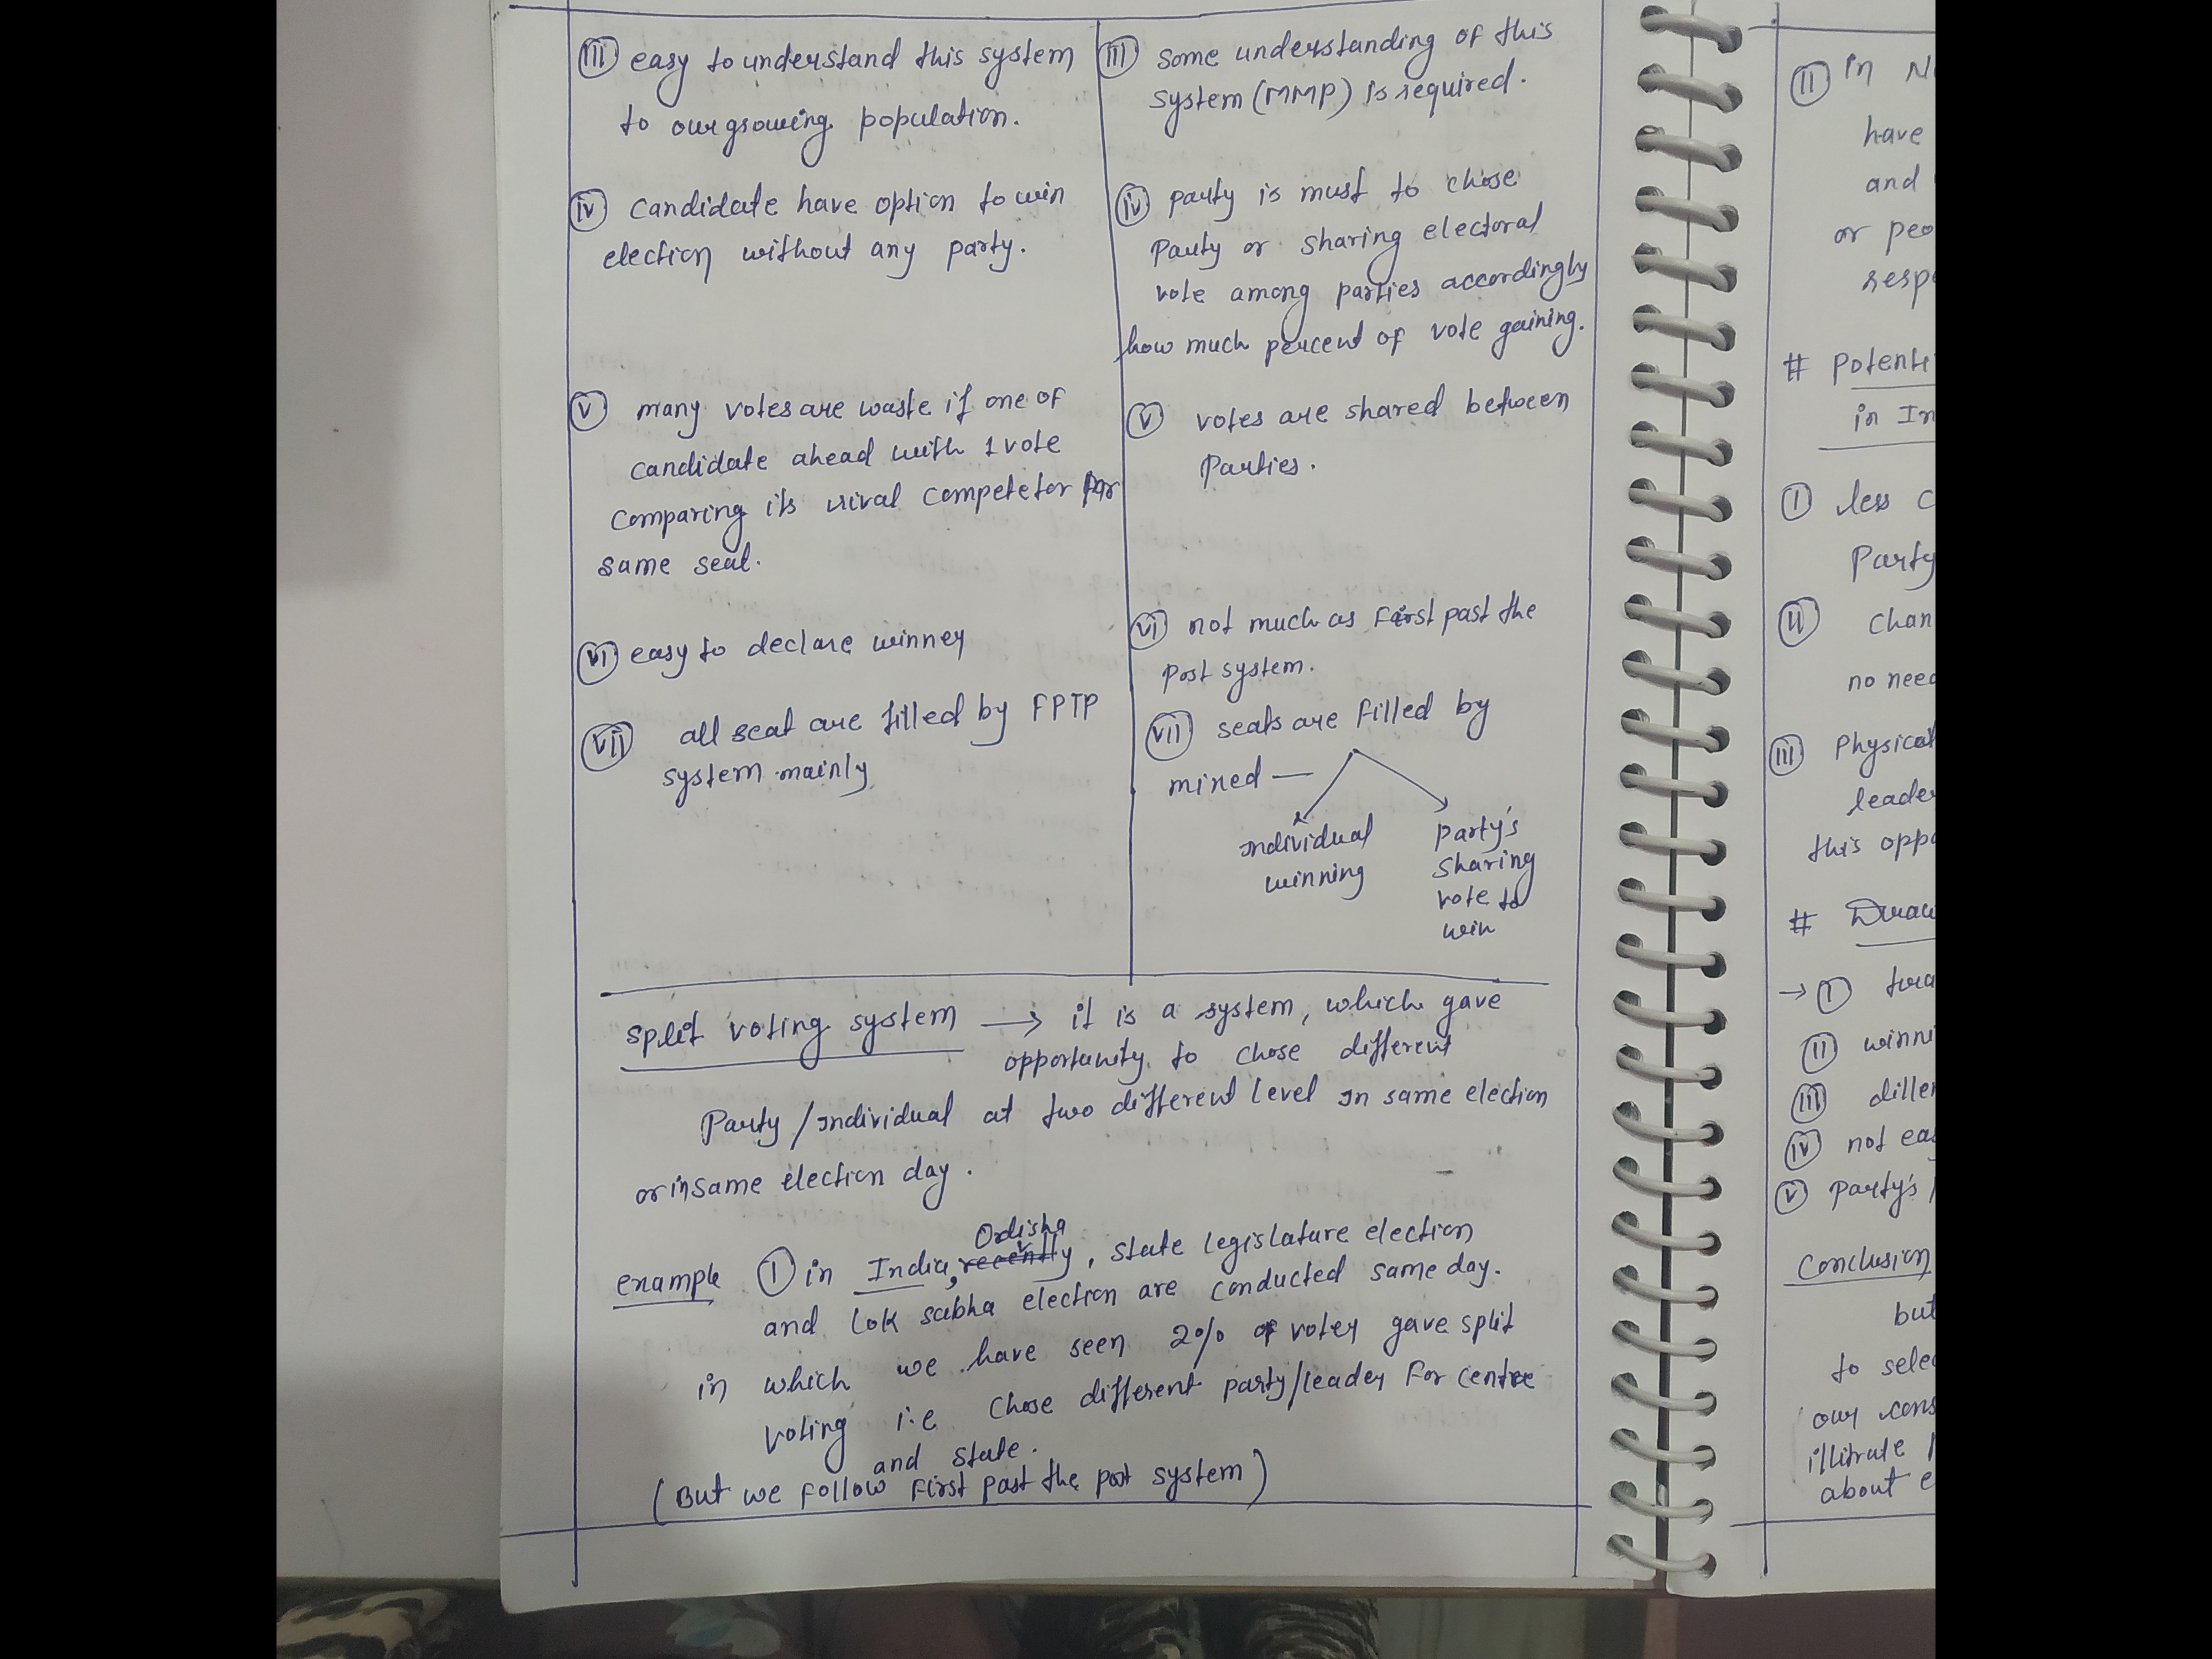 (iii) easy to understand this system
to our growing population.
(iv) candidate have option to win
election without any party.
(v) many votes are waste if one of
candidate ahead with 1 vote
comparing its rival competetor for
same seat.
(vi) easy to declare winner
(vii) all seat are filled by FPTP
system mainly
(iii) some understanding of this
system (MMP) is required.
(iv) party is must to chose
Party or sharing electoral
vote among parties accordingly
how much percent of vote gaining.
(v) votes are shared between
Parties.
(vi) not much as First past the
post system.
(vii) seats are filled by
mined —
individual
winning
party's
sharing
vote to
win
split voting system → it is a system, which gave
opportunity to chose different
Party/individual at two different level in same election
or in same election day.
Ordisha
example (1) in India, recently, state legislature election
and Lok sabha election are conducted same day.
in which we have seen 2% of voter gave split
voting i.e chose different party/leader for centre
and state.
(But we follow first past the post system)
(II) in N
have
and
or peo
resp
# Potenti
in In
(I) less c
Party
(II) chan
no need
(III) Physical
leader
this oppo
# Draw
→ (I)
(II) winni
(III)
(iv) not eas
(v) party's
Conclusion
but
to selec
our cons
illitrate
about e